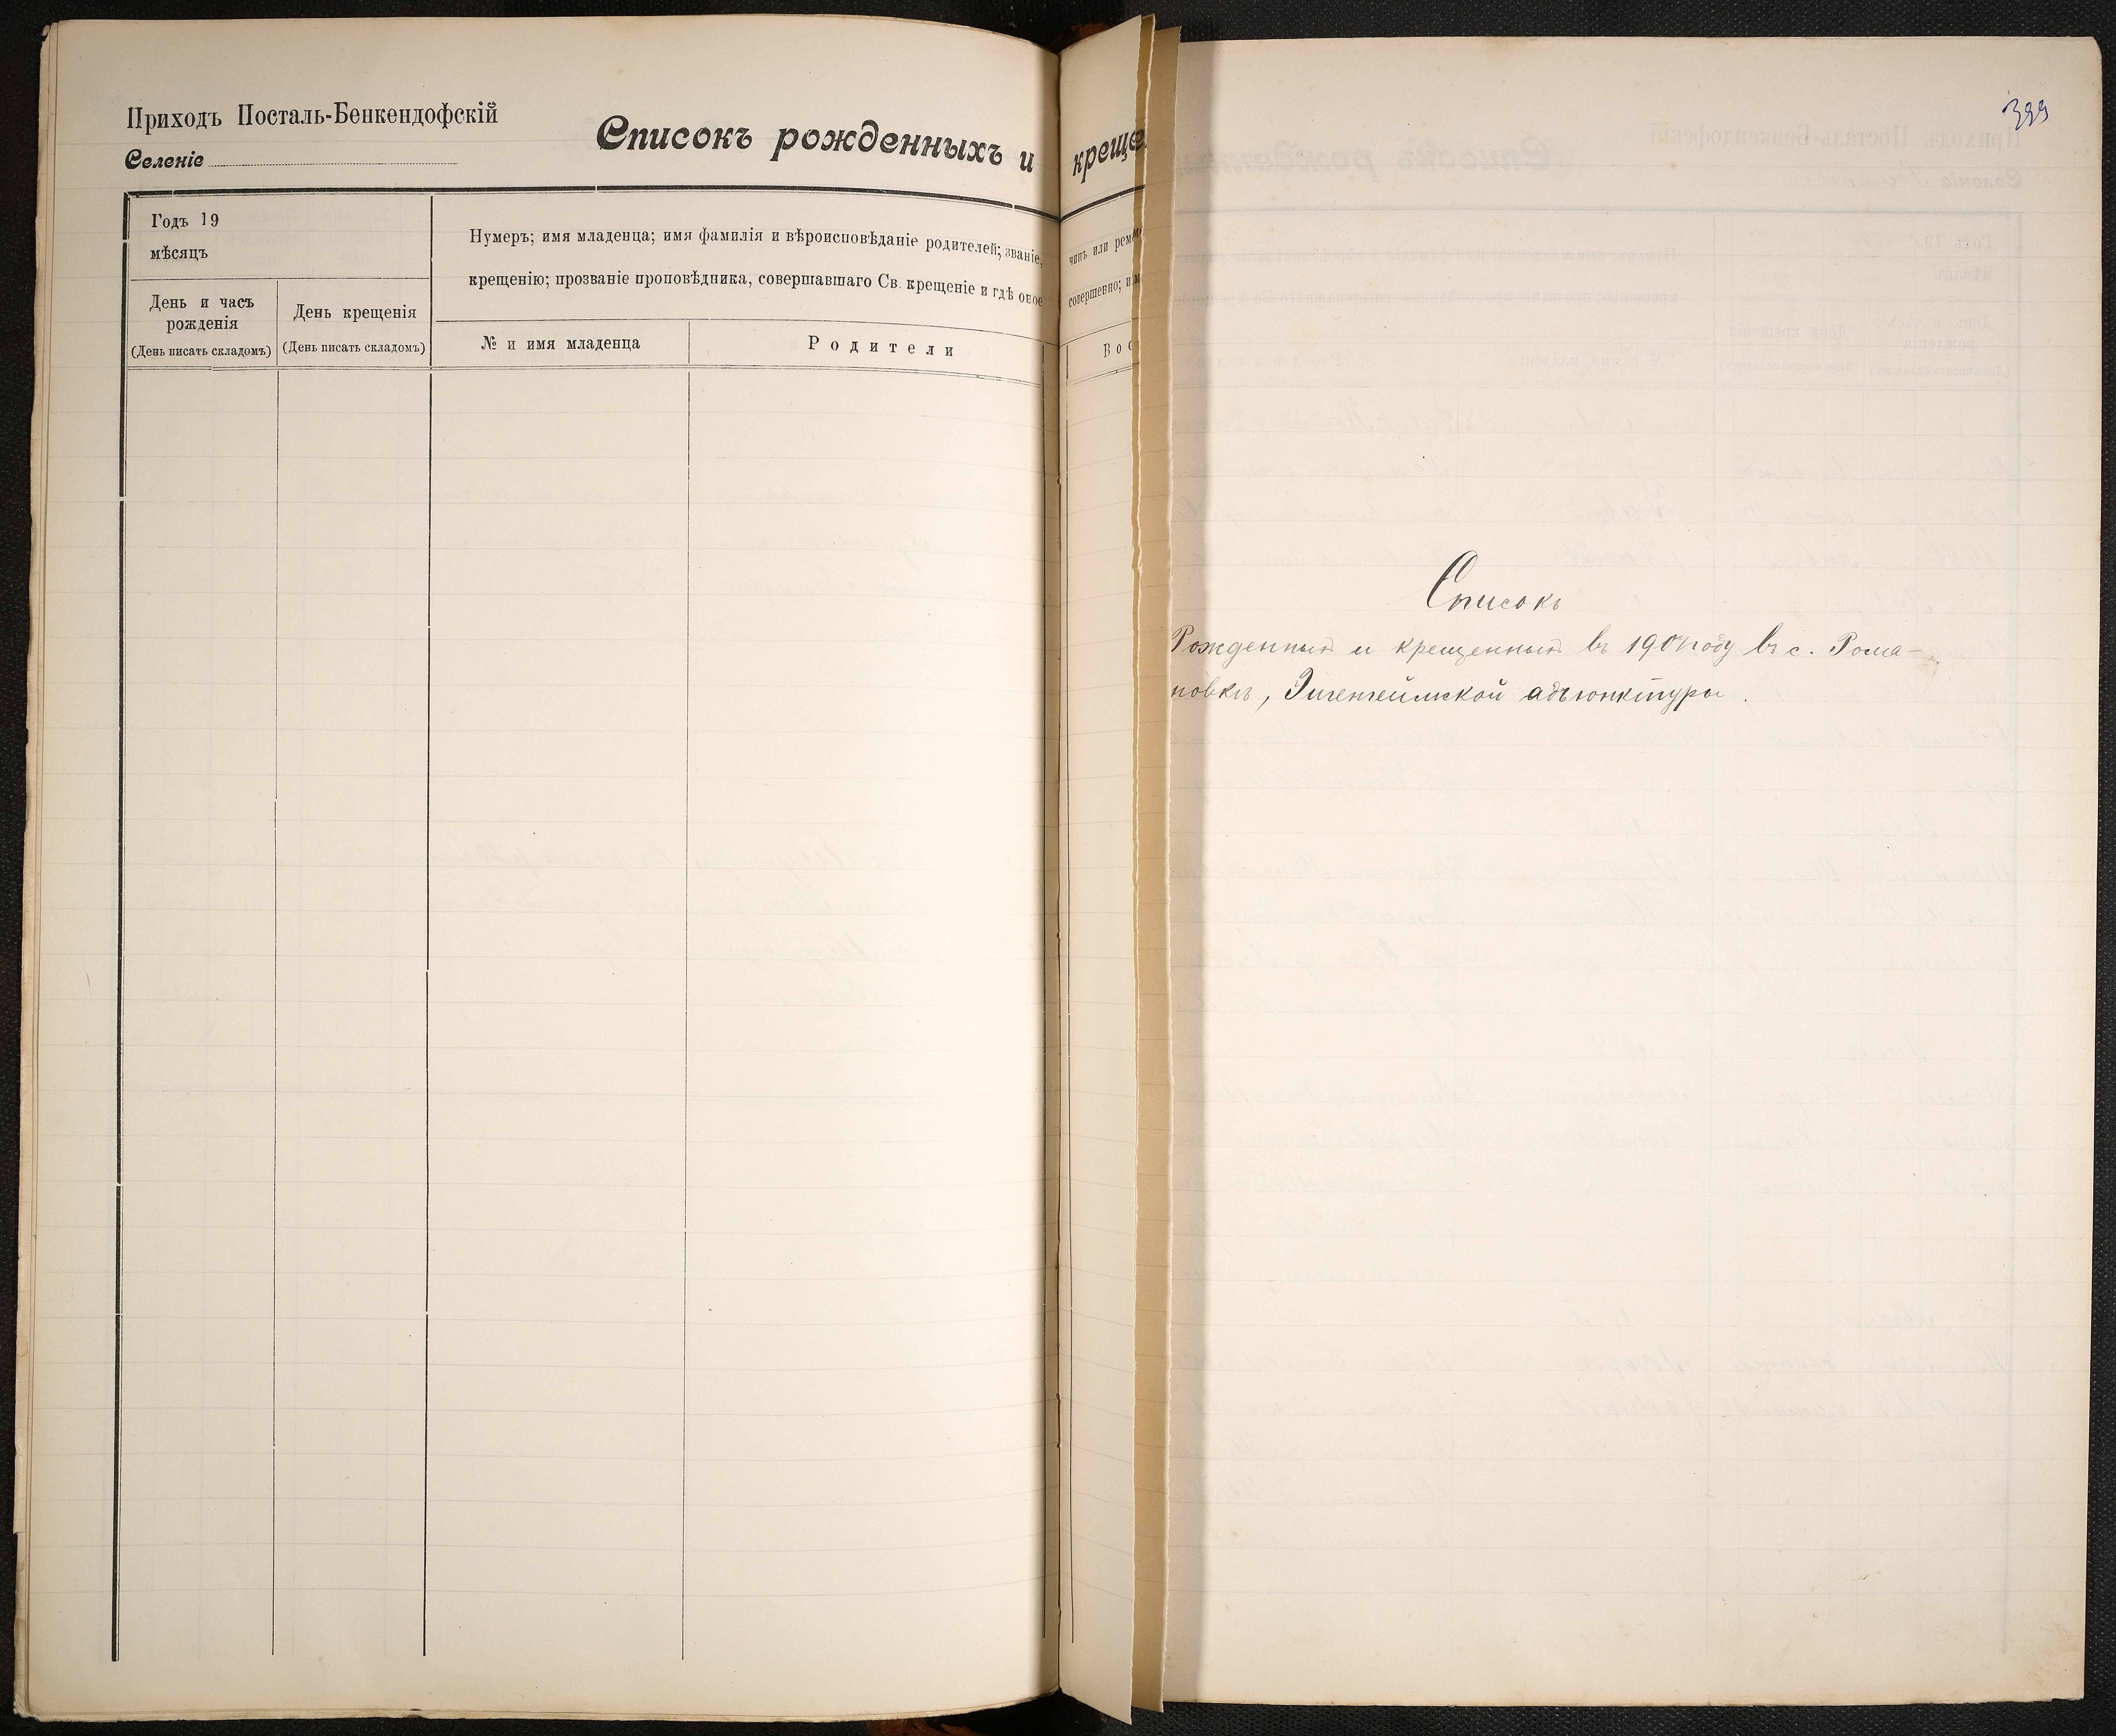 Приходъ Посталь-Бенкендофскій
Селеніе
Списокъ рожденныхъ и
креще
Годъ 19
мѣсяцъ
Нумеръ; имя младенца; имя фамилія и вѣроисповѣданіе родителей; званіе,
крещенію; прозваніе проповѣдника, совершавшаго Св. крещеніе и гдѣ оное
День и часъ
рожденія
(День писать складомъ)
День крещенія
(День писать складомъ)
№ и имя младенца
Родители
чинъ или реме
совершенно; и м
Вос
399
Списокъ
Рожденныхъ и крещенныхъ въ году въ с. Рома-
новкѣ, Эйгенгеймской адъюнктуры.